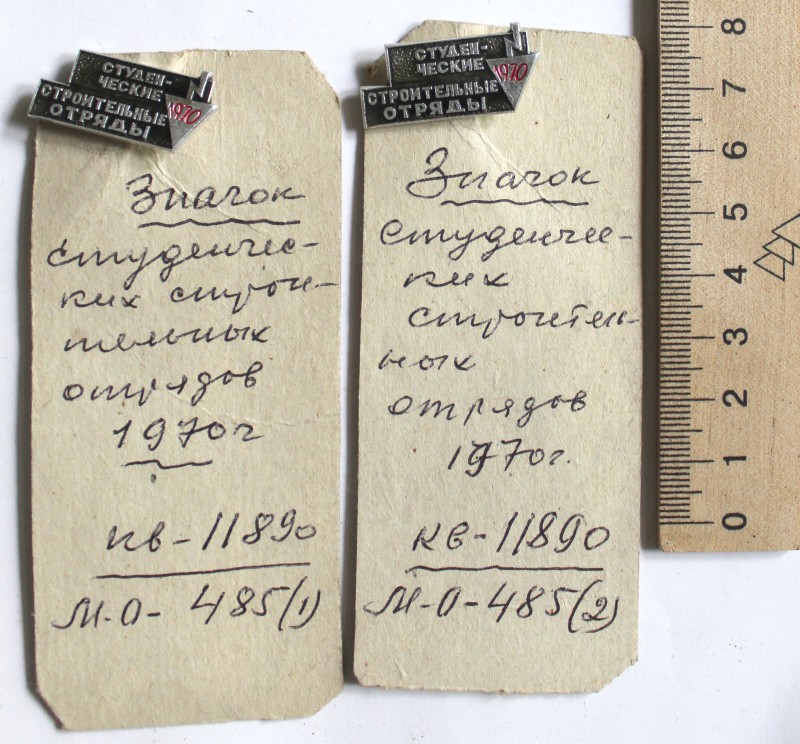 СТУДЕН-
ЧЕСКИЕ
СТРОИТЕЛЬНЫЕ 1970
ОТРЯДЫ
Значок
студенчес-
ких строи-
тельных
отрядов
1970г
кв-11890
М-О-485(1)
СТУДЕН-
ЧЕСКИЕ
СТРОИТЕЛЬНЫЕ 1970
ОТРЯДЫ
Значок
студенчес-
ких
строител-
ных
отрядов
1970г.
кв-11890
М-О-485(2)
8
7
6
5
4
3
2
1
0